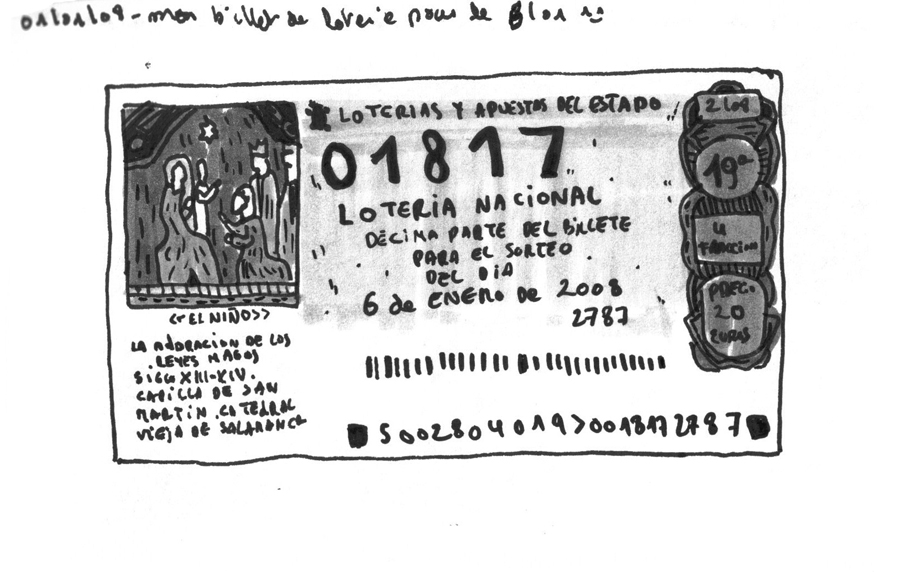 01/01/08 - mon billet de loterie pour le
LOTERIAS Y APUESTAS DEL ESTADO
01817
LOTERIA NACIONAL
DÉCIMA PARTE DEL BILLETE
PARA EL SORTEO
DEL DIA
6 de ENERO DE 2008
2787
19ª
4
FRACCION
PRECIO
20
EUROS
<<EL NIÑO>>
LA ADORACION DE LOS
REYES MAGOS
SIGLO XIII-XIV.
CAPILLA DE SAN
MARTIN. CATEDRAL
VIEJA DE SALAMANCA
5002804019>0018172787